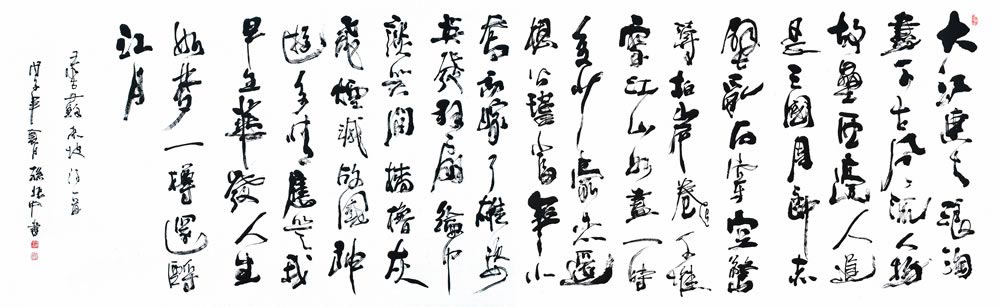 大江東去浪淘
盡千古風流人物
故壘西邊人道
是三國周郎赤
壁亂石穿空驚
濤拍岸卷起千堆
雪江山如畫一時
多少豪傑遙
想公瑾當年小
喬初嫁了雄姿
英發羽扇綸巾
談笑間檣櫓灰
飛煙滅故國神
遊多情應笑我
早生華發人生
如夢一樽還酹
江月
蘇東坡詞一首
戊子年月書